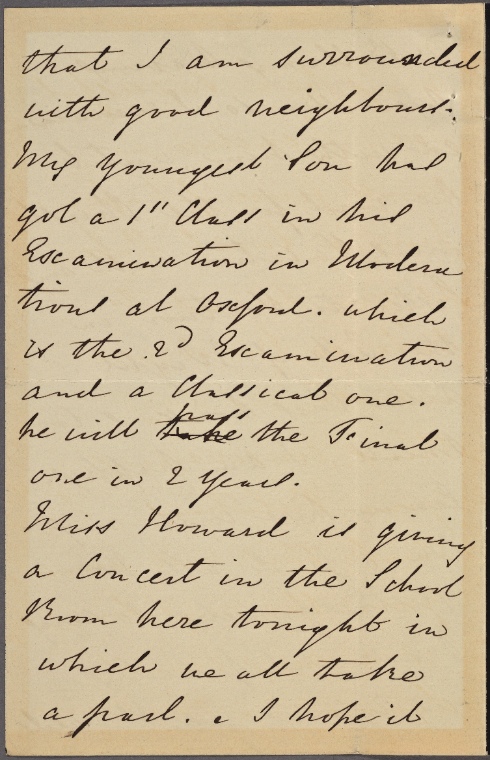 that I am surrounded
with good neighbours.
My youngest Son has
got a 1st Class in his
Examination in Modera
tions at Oxford. which
is the 2d Examination
and a Classical one.
he will take pass the Final
one in 2 years.
Miss Howard is giving
a Concert in the School
Room here tonight in
which we all take
a part. & I hope it